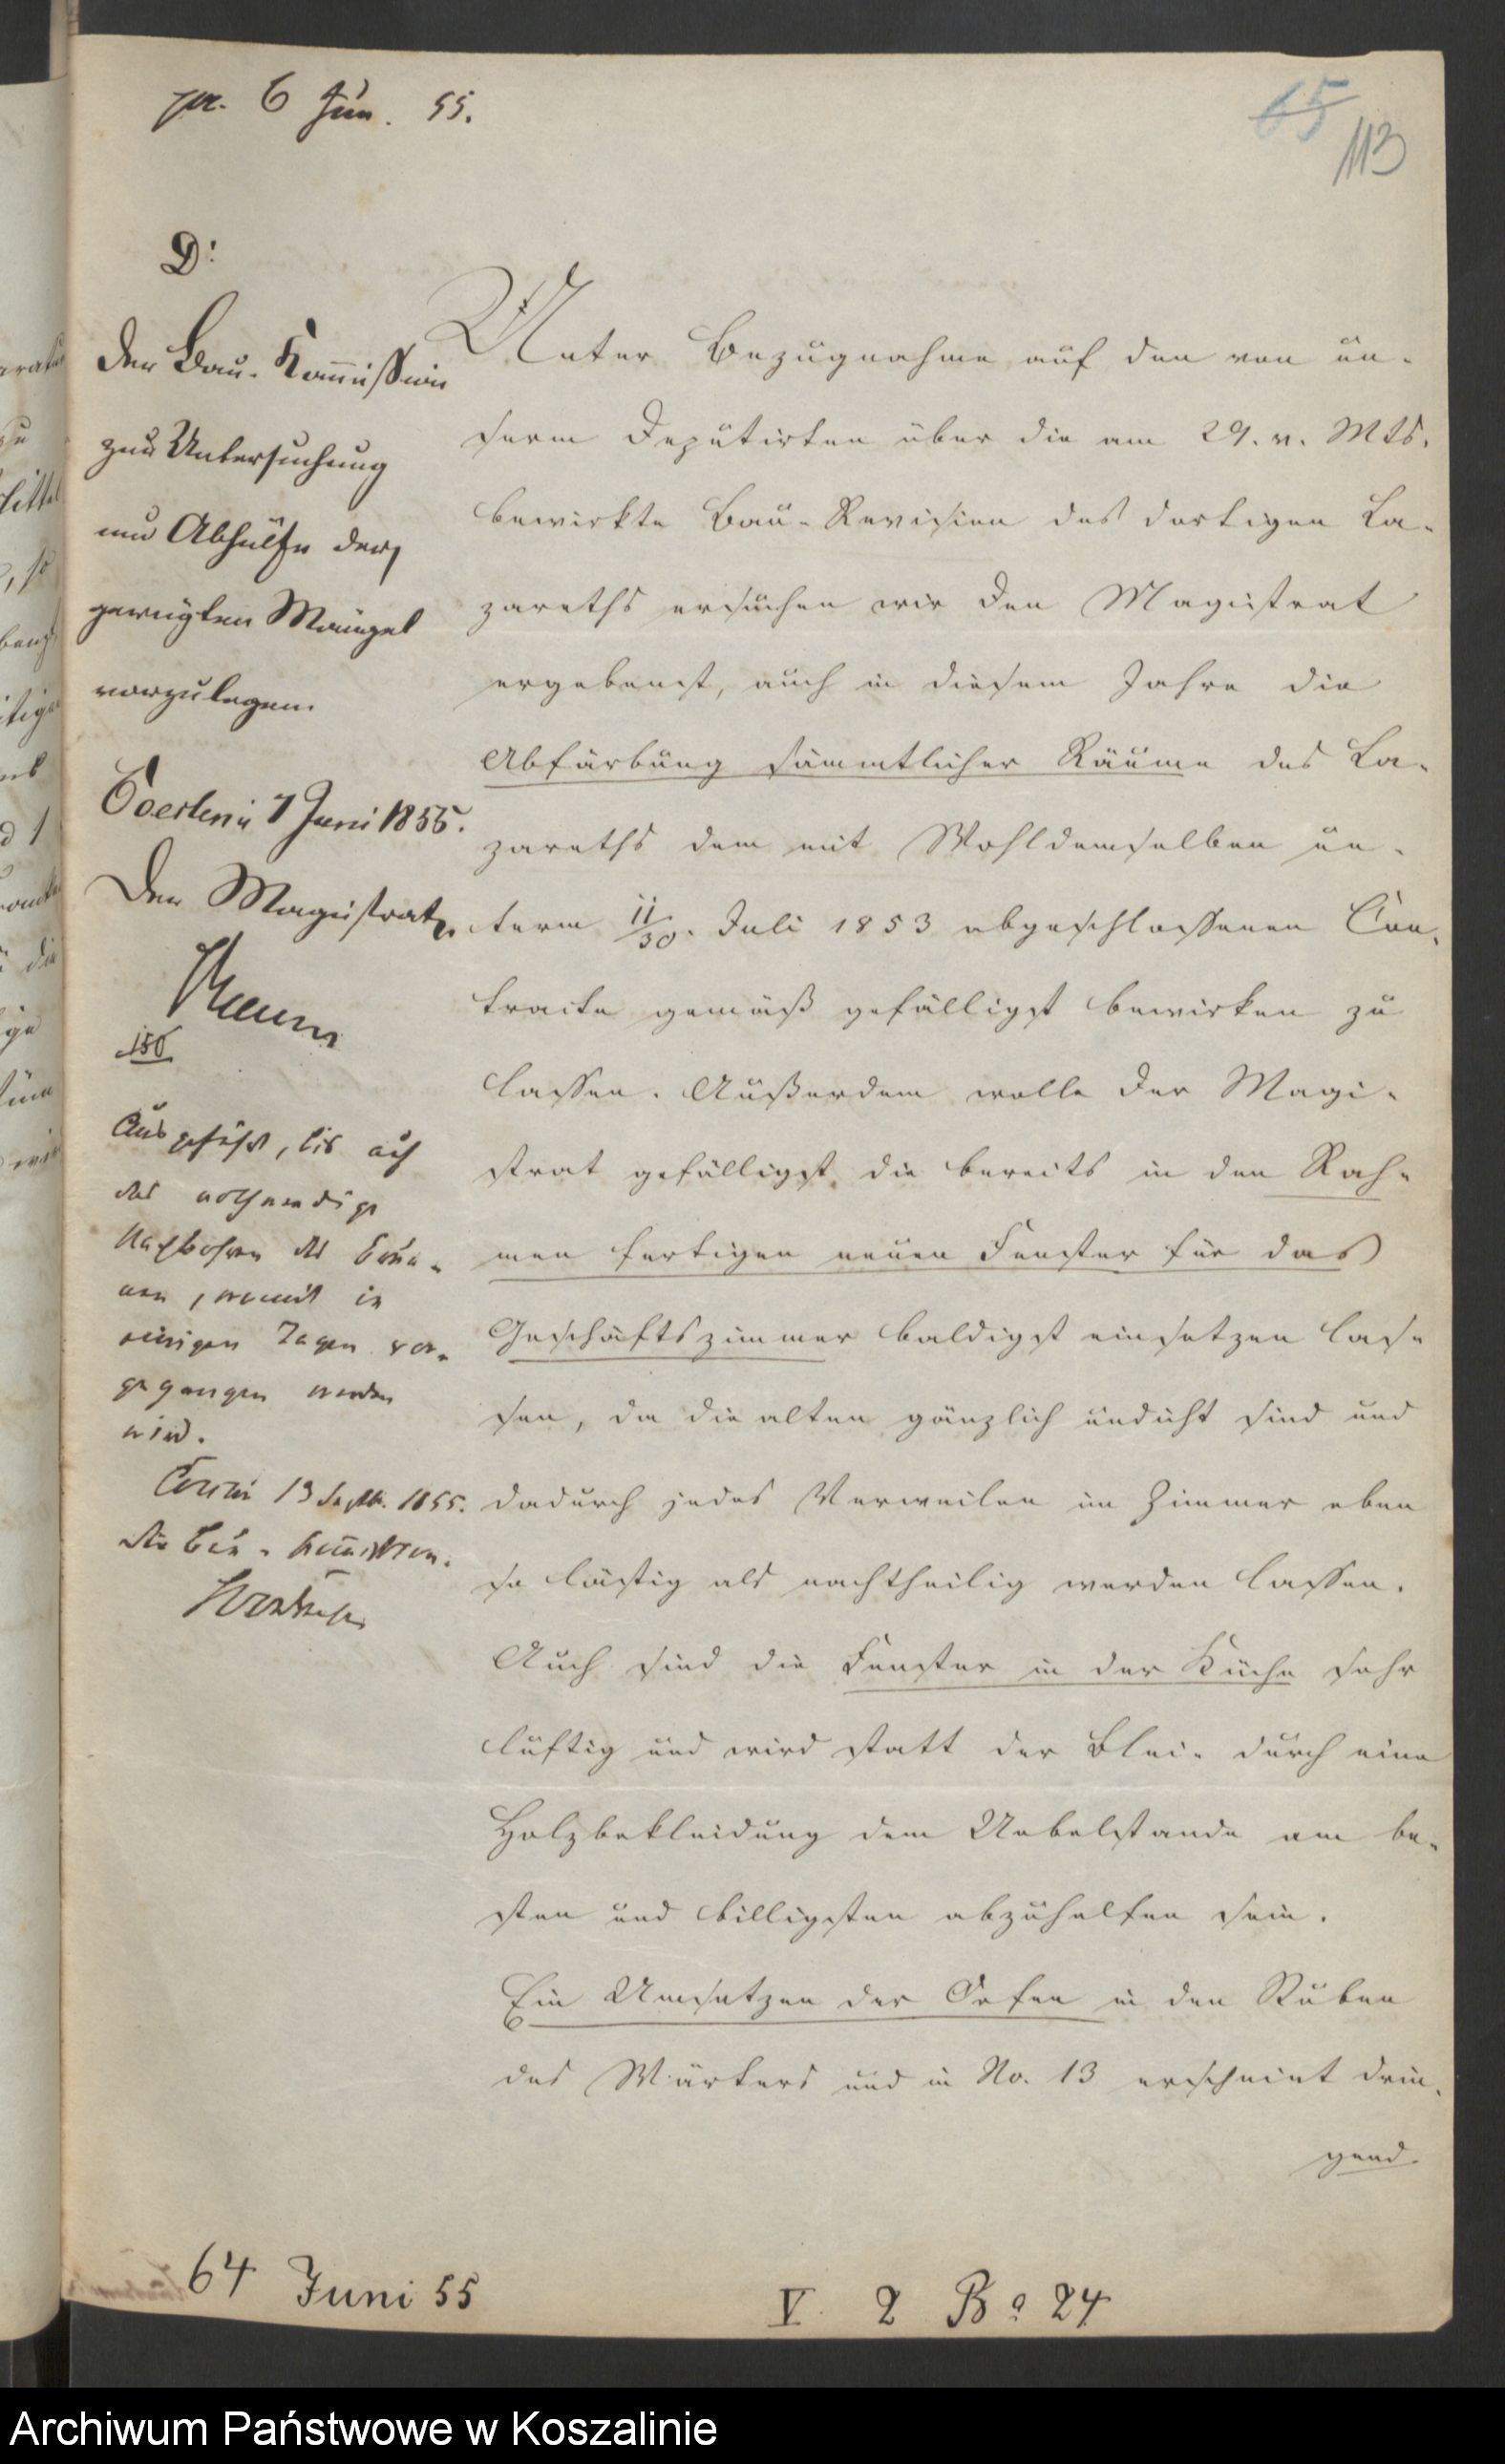 pr. 6 Jun. 55.
65
113
D!
Der Bau-Kom̄ission
zur Untersuchung
und Abhülfe der
gerügten Mängel
vorzulegen.
Coeslin 7 Juni 1855.
Der Magistrat
Ausgeführt, bis auf
das nothwendige
Nachbohren des Brun-
nen, womit in
einigen Tagen vor-
gegangen werden
wird.
Cöslin 13 Septb. 1855.
Die Bau-Kom̄ission.
Unter Bezugnahme auf den von un-
serm Deputirten über die am 29. v. Mts.
bewirkte Bau-Revision des dortigen La-
zareths ersuchen wir den Magistrat
ergebenst, auch in diesem Jahre die
Abfärbung sämmtlicher Räume des La-
zareths dem mit Wohldemselben un-
term 11/30. Juli 1853 abgeschlossenen Con-
tracte gemäß gefälligst bewirken zu
lassen. Außerdem wolle der Magi-
strat gefälligst die bereits in den Rah-
men fertigen neuen Fenster für das
Geschäftszimmer baldigst einsetzen las-
sen, da die alten gänzlich undicht sind und
dadurch jedes Verweilen im Zimmer eben
so lästig als nachtheilig werden lassen.
Auch sind die Fenster in der Küche sehr
luftig und wird statt der Blei- durch eine
Holzbekleidung dem Uebelstande am be-
sten und billigsten abzuhelfen sein.
Ein Umsetzen der Oefen in den Stuben
des Wärters und in No. 13 erscheint drin-
gend
64 Juni 55
V. 2 B. 24
Archiwum Państwowe w Koszalinie